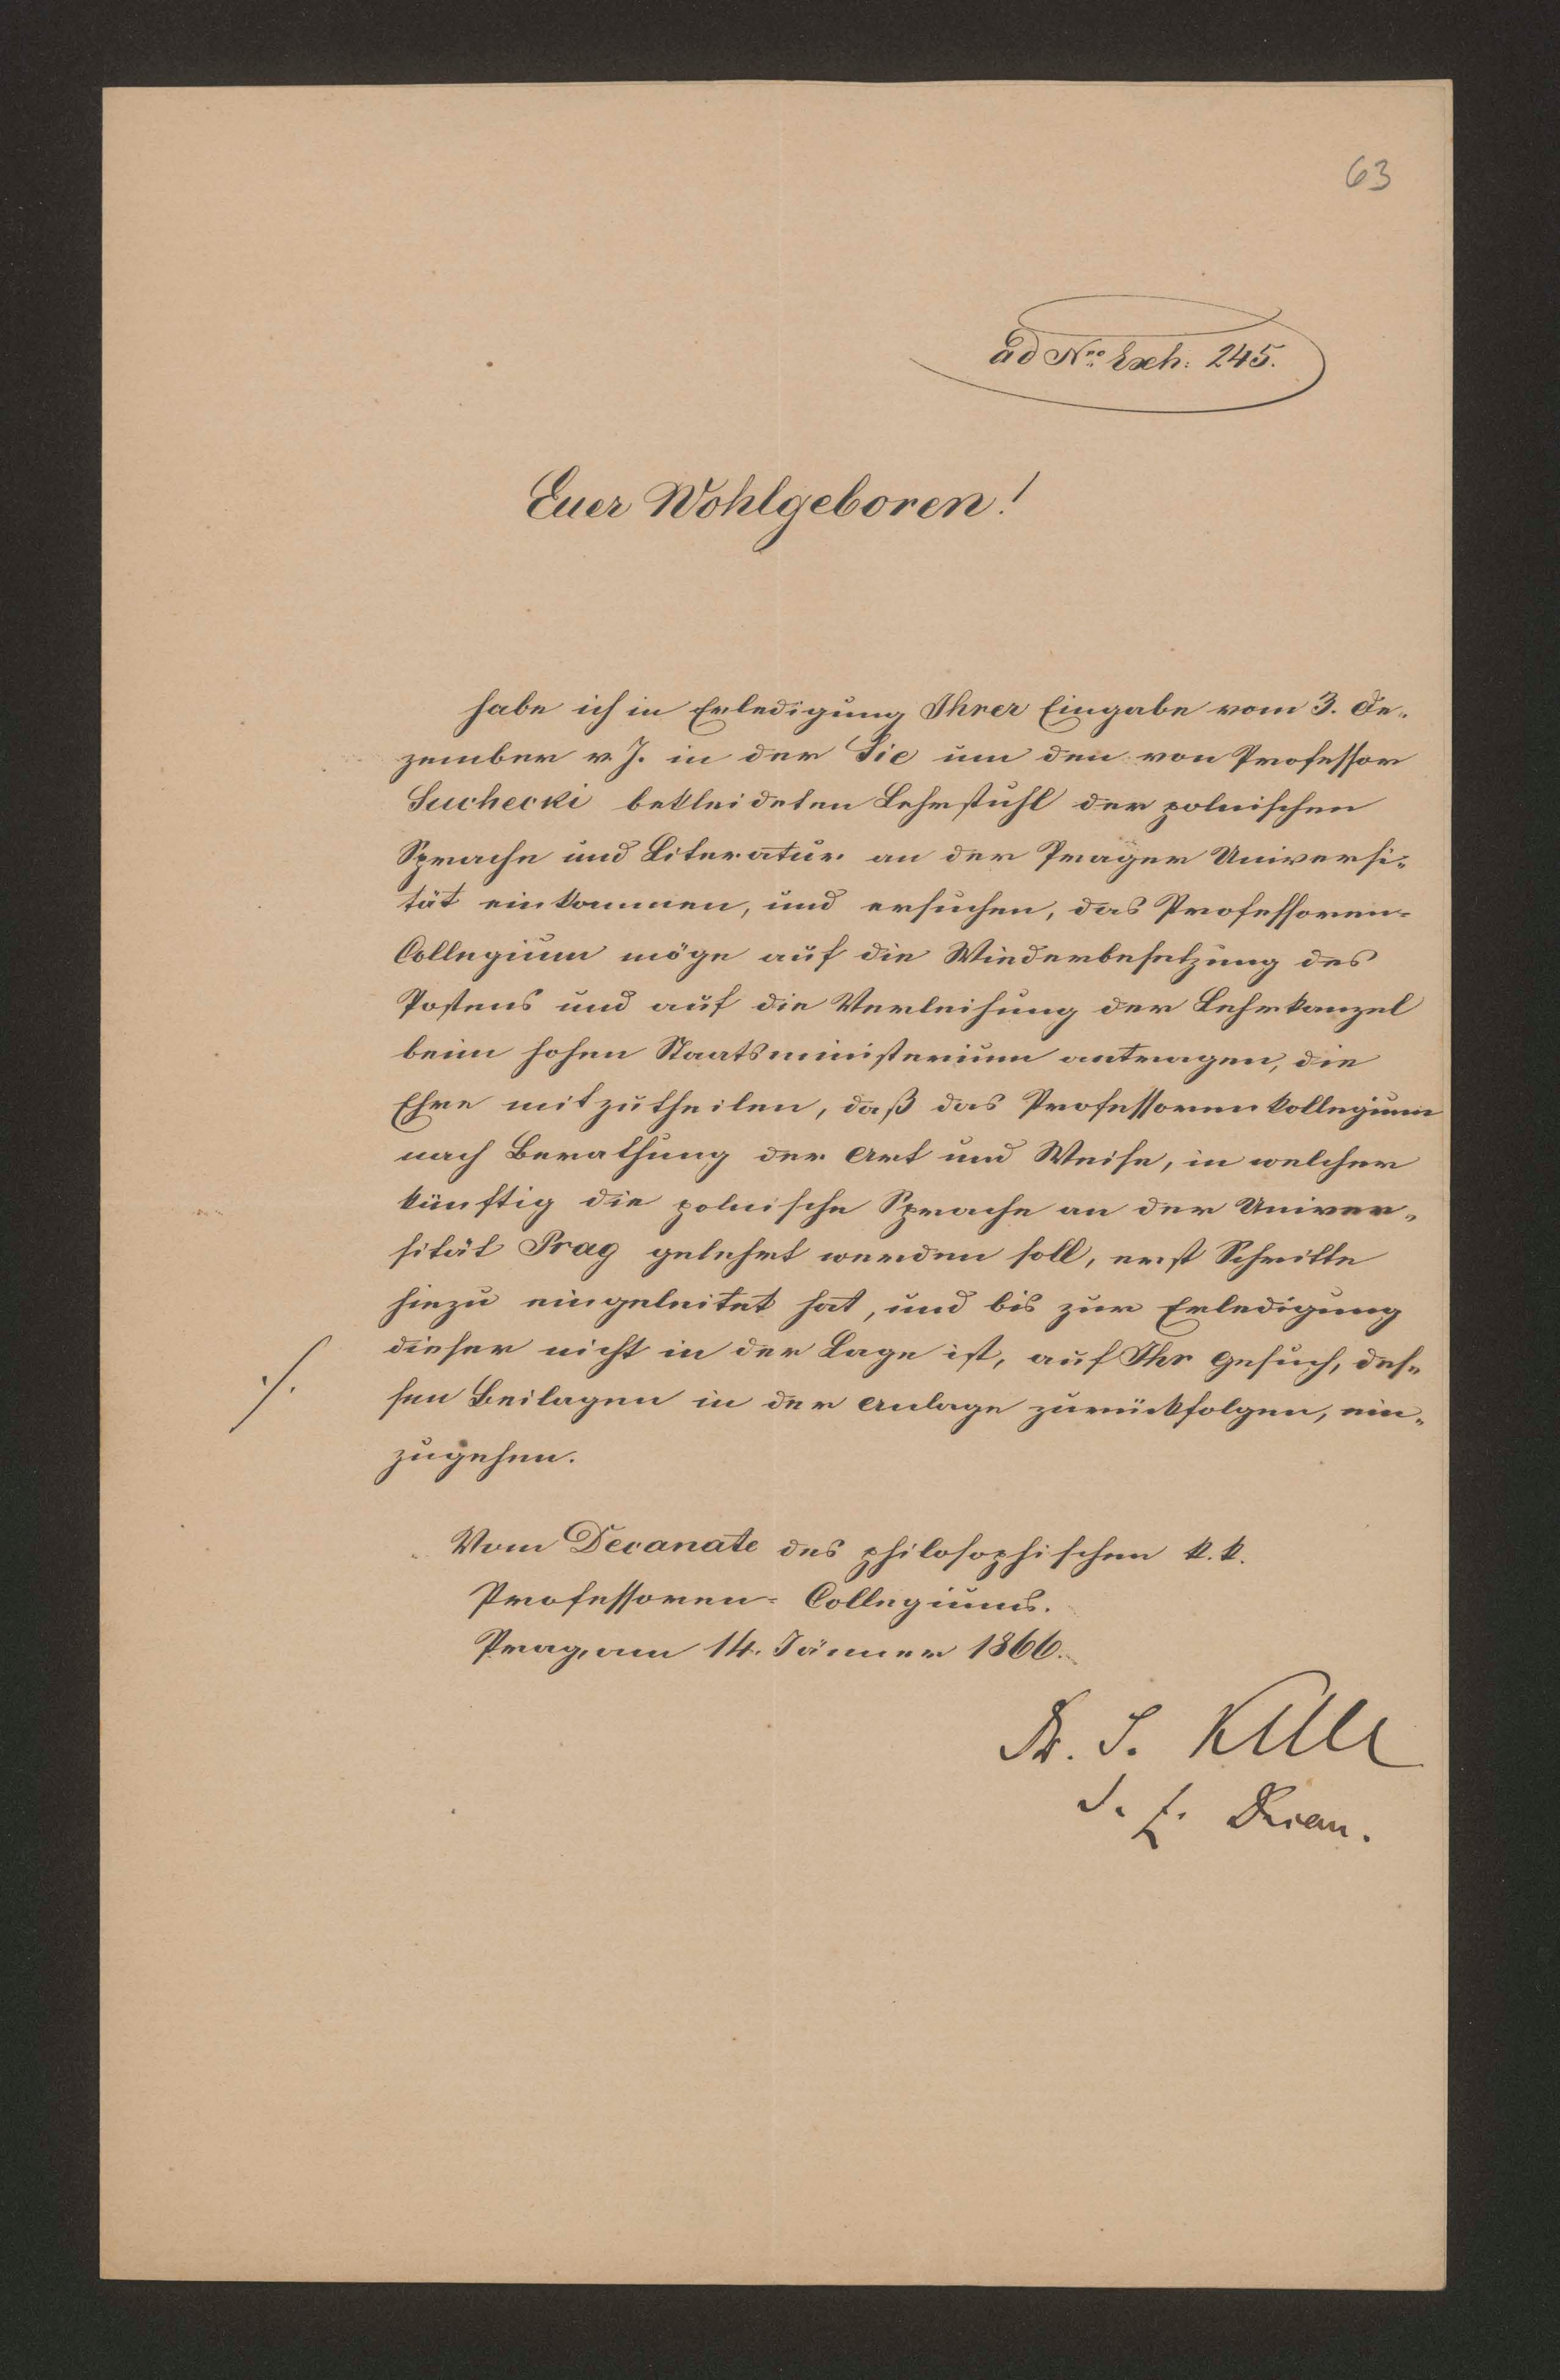 63
ad Nro Exh: 245.
Euer Wohlgeboren!
habe ich in Erledigung Ihrer Eingabe vom 3. De-
zember v. J. in der Sie um den von Professor
Suchecki bekleideten Lehrstuhl der polnischen
Sprache und Literatur an der Prager Universi-
tät einkommen, und ersuchen, das Professoren-
Collegium möge auf die Wiederbesetzung des
Postens und auf die Verleihung der Lehrkanzel
beim hohen Staatsministerium antragen, die
Ehre mitzutheilen, daß das Professorenkollegium
nach Berathung der Art und Weise, in welcher
künftig die polnische Sprache an der Univer-
sität Prag gelehrt werden soll, erst Schritte
hiezu eingeleitet hat, und bis zur Erledigung
dieser nicht in der Lage ist, auf Ihr Gesuch, des-
./. sen Beilagen in der Anlage zurückfolgen, ein-
zugehen.
Vom Decanate des philosophischen k. k.
Professoren-Collegiums.
Prag, am 14. Jänner 1866.
Dr. J. Kelle